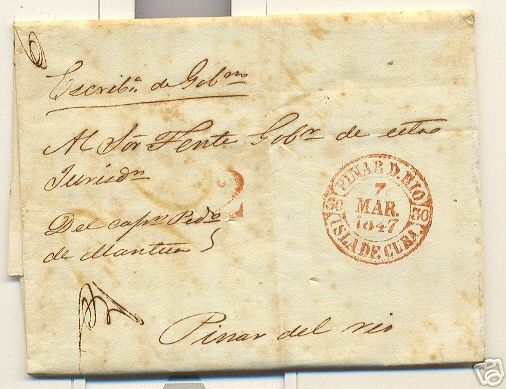 Escriba. de Gobno
Al Sor Tente Gobr de estas
Juriedn
Del capn Pedo
de Mantua
2
PINAR D. RIO
7
MAR.
1847
ISLA DE CUBA.
Pinar del rio